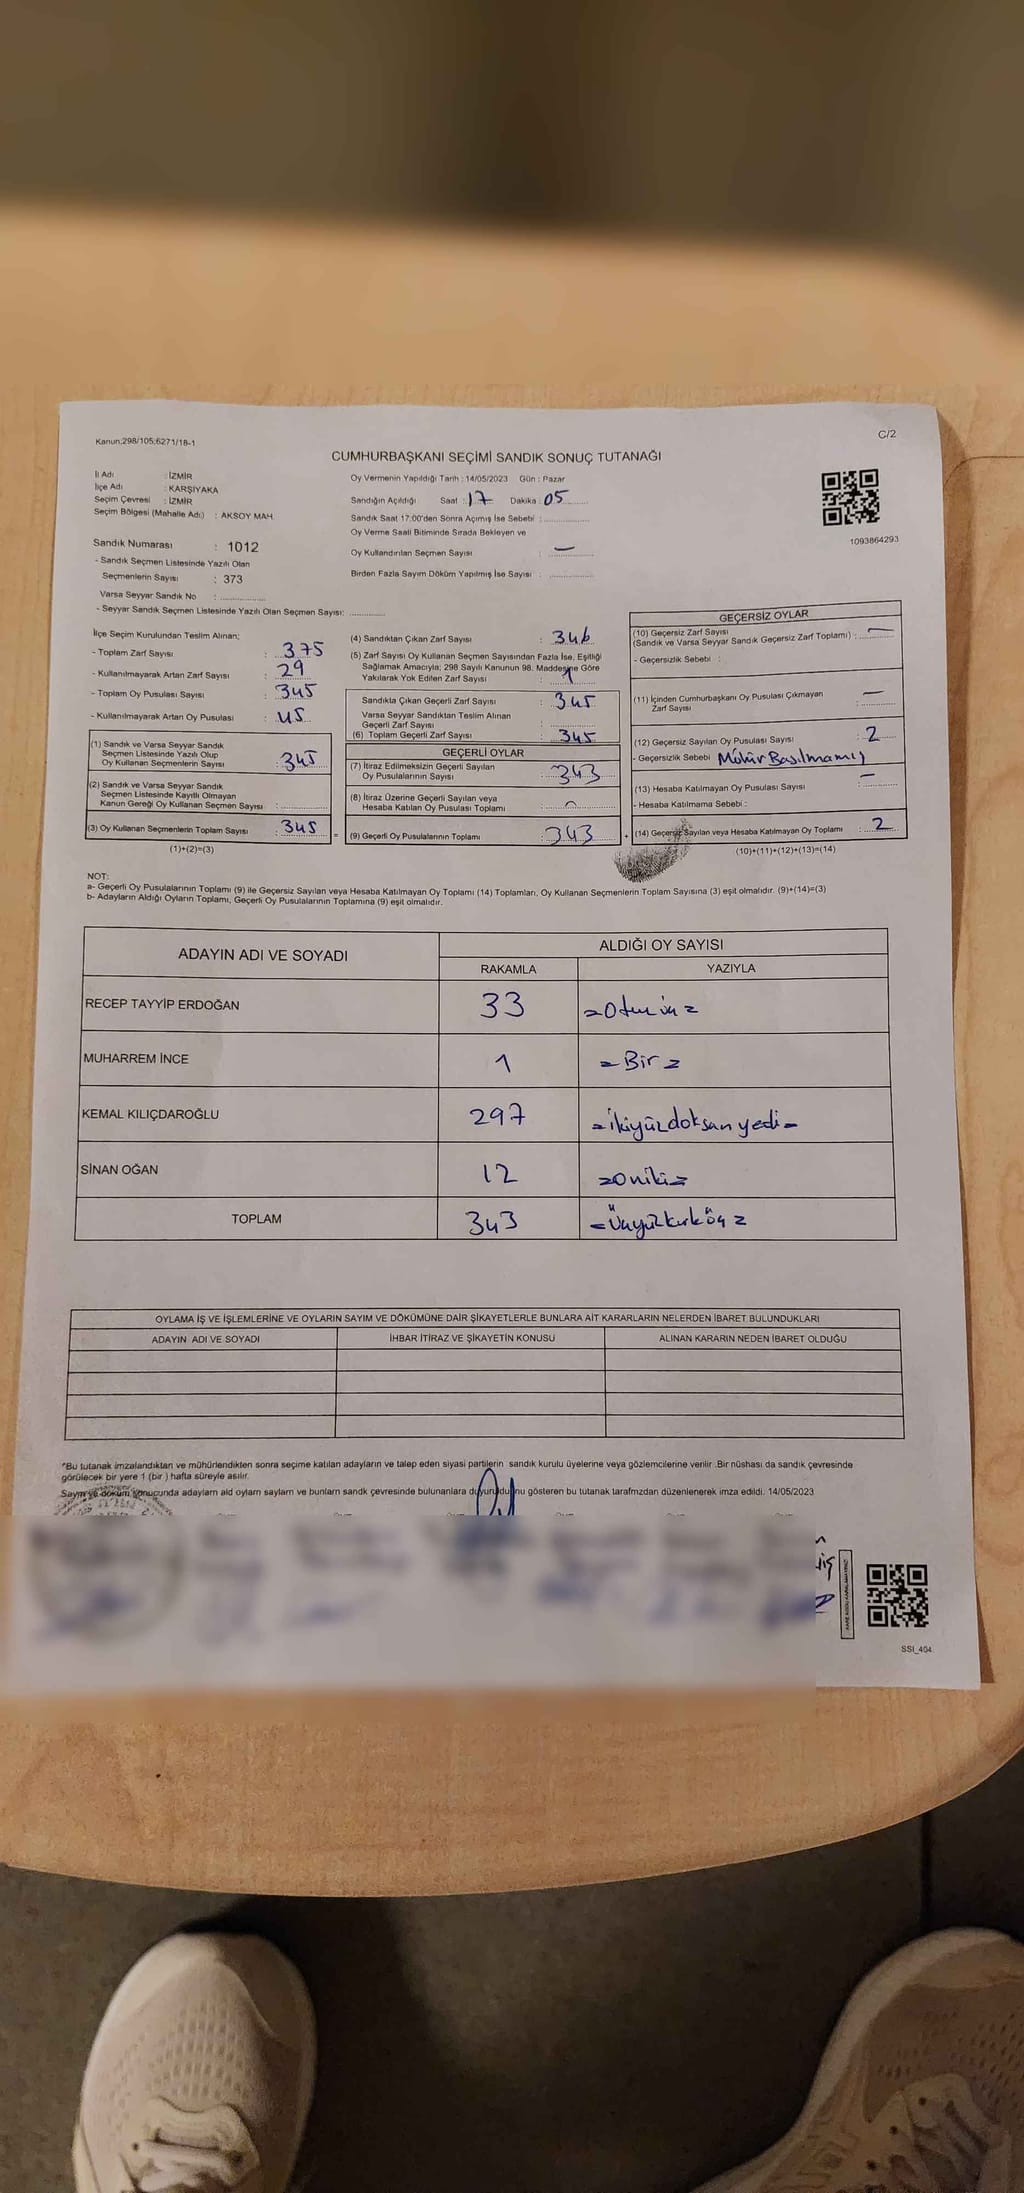 Kanun:298/105;6271/18-1
C/2
CUMHURBAŞKANI SEÇİMİ SANDIK SONUÇ TUTANAĞI
İl Adı : İZMİR
İlçe Adı : KARŞIYAKA
Seçim Çevresi : İZMİR
Seçim Bölgesi (Mahalle Adı) : AKSOY MAH.
Sandık Numarası : 1012
- Sandık Seçmen Listesinde Yazılı Olan
Seçmenlerin Sayısı : 373
Varsa Seyyar Sandık No :
- Seyyar Sandık Seçmen Listesinde Yazılı Olan Seçmen Sayısı:
Oy Vermenin Yapıldığı Tarih : 14/05/2023 Gün : Pazar
Sandığın Açıldığı Saat : 17 Dakika : 05
Sandık Saat 17:00'den Sonra Açımış İse Sebebi :
Oy Verme Saati Bitiminde Sırada Bekleyen ve
Oy Kullandırılan Seçmen Sayısı : —
Birden Fazla Sayım Döküm Yapılmış İse Sayısı :
1093864293
İlçe Seçim Kurulundan Teslim Alınan;
- Toplam Zarf Sayısı : 375
- Kullanılmayarak Artan Zarf Sayısı : 29
- Toplam Oy Pusulası Sayısı : 345
- Kullanılmayarak Artan Oy Pusulası : 45
(1) Sandık ve Varsa Seyyar Sandık
Seçmen Listesinde Yazılı Olup
Oy Kullanan Seçmenlerin Sayısı : 345
(2) Sandık ve Varsa Seyyar Sandık
Seçmen Listesinde Kayıtlı Olmayan
Kanun Gereği Oy Kullanan Seçmen Sayısı :
(3) Oy Kullanan Seçmenlerin Toplam Sayısı : 345
(1)+(2)=(3)
(4) Sandıktan Çıkan Zarf Sayısı : 346
(5) Zarf Sayısı Oy Kullanan Seçmen Sayısından Fazla İse, Eşitliği
Sağlamak Amacıyla; 298 Sayılı Kanunun 98. Maddesine Göre
Yakılarak Yok Edilen Zarf Sayısı : 1
Sandıkta Çıkan Geçerli Zarf Sayısı : 345
Varsa Seyyar Sandıktan Teslim Alınan
Geçerli Zarf Sayısı
(6) Toplam Geçerli Zarf Sayısı : 345
GEÇERLİ OYLAR
(7) İtiraz Edilmeksizin Geçerli Sayılan
Oy Pusulalarının Sayısı : 343
(8) İtiraz Üzerine Geçerli Sayılan veya
Hesaba Katılan Oy Pusulası Toplamı :
(9) Geçerli Oy Pusulalarının Toplamı : 343
GEÇERSİZ OYLAR
(10) Geçersiz Zarf Sayısı
(Sandık ve Varsa Seyyar Sandık Geçersiz Zarf Toplamı) : —
- Geçersizlik Sebebi :
(11) İçinden Cumhurbaşkanı Oy Pusulası Çıkmayan
Zarf Sayısı : —
(12) Geçersiz Sayılan Oy Pusulası Sayısı : 2
- Geçersizlik Sebebi : Mühür Basılmamış
(13) Hesaba Katılmayan Oy Pusulası Sayısı : —
- Hesaba Katılmama Sebebi :
(14) Geçersiz Sayılan veya Hesaba Katılmayan Oy Toplamı : 2
(10)+(11)+(12)+(13)=(14)
NOT:
a- Geçerli Oy Pusulalarının Toplamı (9) ile Geçersiz Sayılan veya Hesaba Katılmayan Oy Toplamı (14) Toplamları, Oy Kullanan Seçmenlerin Toplam Sayısına (3) eşit olmalıdır. (9)+(14)=(3)
b- Adayların Aldığı Oyların Toplamı, Geçerli Oy Pusulalarının Toplamına (9) eşit olmalıdır.
ADAYIN ADI VE SOYADI
ALDIĞI OY SAYISI
RAKAMLA YAZIYLA
RECEP TAYYİP ERDOĞAN 33 =Otuzüç=
MUHARREM İNCE 1 =Bir=
KEMAL KILIÇDAROĞLU 297 =ikiyüzdoksanyedi=
SİNAN OĞAN 12 =Oniki=
TOPLAM 343 =Üçyüzkırküç=
OYLAMA İŞ VE İŞLEMLERİNE VE OYLARIN SAYIM VE DÖKÜMÜNE DAİR ŞİKAYETLERLE BUNLARA AİT KARARLARIN NELERDEN İBARET BULUNDUKLARI
ADAYIN ADI VE SOYADI İHBAR İTİRAZ VE ŞİKAYETİN KONUSU ALINAN KARARIN NEDEN İBARET OLDUĞU
*Bu tutanak imzalandıktan ve mühürlendikten sonra seçime katılan adayların ve talep eden siyasi partilerin sandık kurulu üyelerine veya gözlemcilerine verilir .Bir nüshası da sandık çevresinde
görülecek bir yere 1 (bir ) hafta süreyle asılır.
Sayım ve döküm sonucunda adayların aldı oyların sayların ve bunların sandk çevresinde bulunanlara duyurulduğunu gösteren bu tutanak tarafmzdan düzenlenerek imza edildi. 14/05/2023
SSI_404